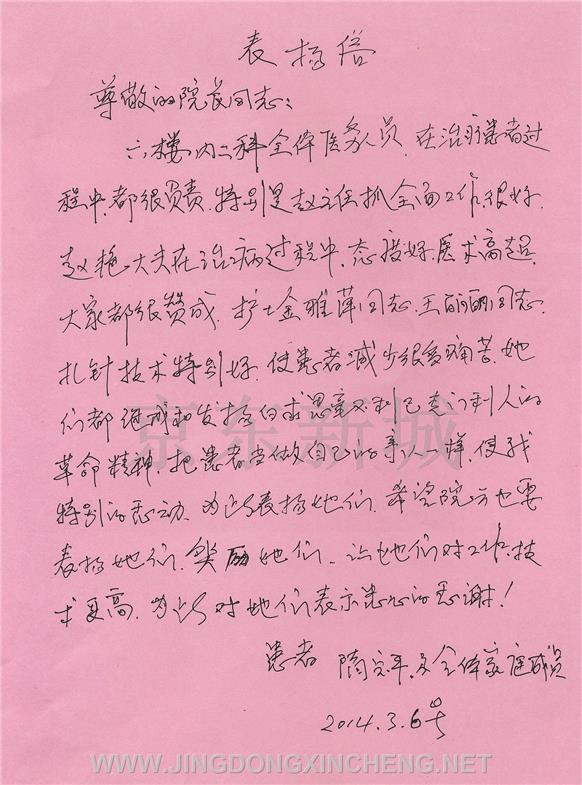 表扬信
尊敬的院长同志：
六楼内二科全体医务人员，在治疗患者过
程中，都很负责，特别是赵主任抓全面工作很好，
赵艳大夫在治病过程中，态度好医术高超，
大家都很赞成，护士金雅萍同志，王丽丽同志，
扎针技术特别好，使患者减少很多痛苦，她
们都继承和发扬白求恩毫不利己专门利人的
革命精神，把患者当做自己的亲人一样，使我
特别的感动，为此表扬她们，希望院方也要
表扬她们，奖励她们，让她们对工作技
术更高，为此对她们表示衷心的感谢！
患者 隋 及全体家庭成员
2014.3.6号
京东新城
WWW.JINGDONGXINCHENG.NET